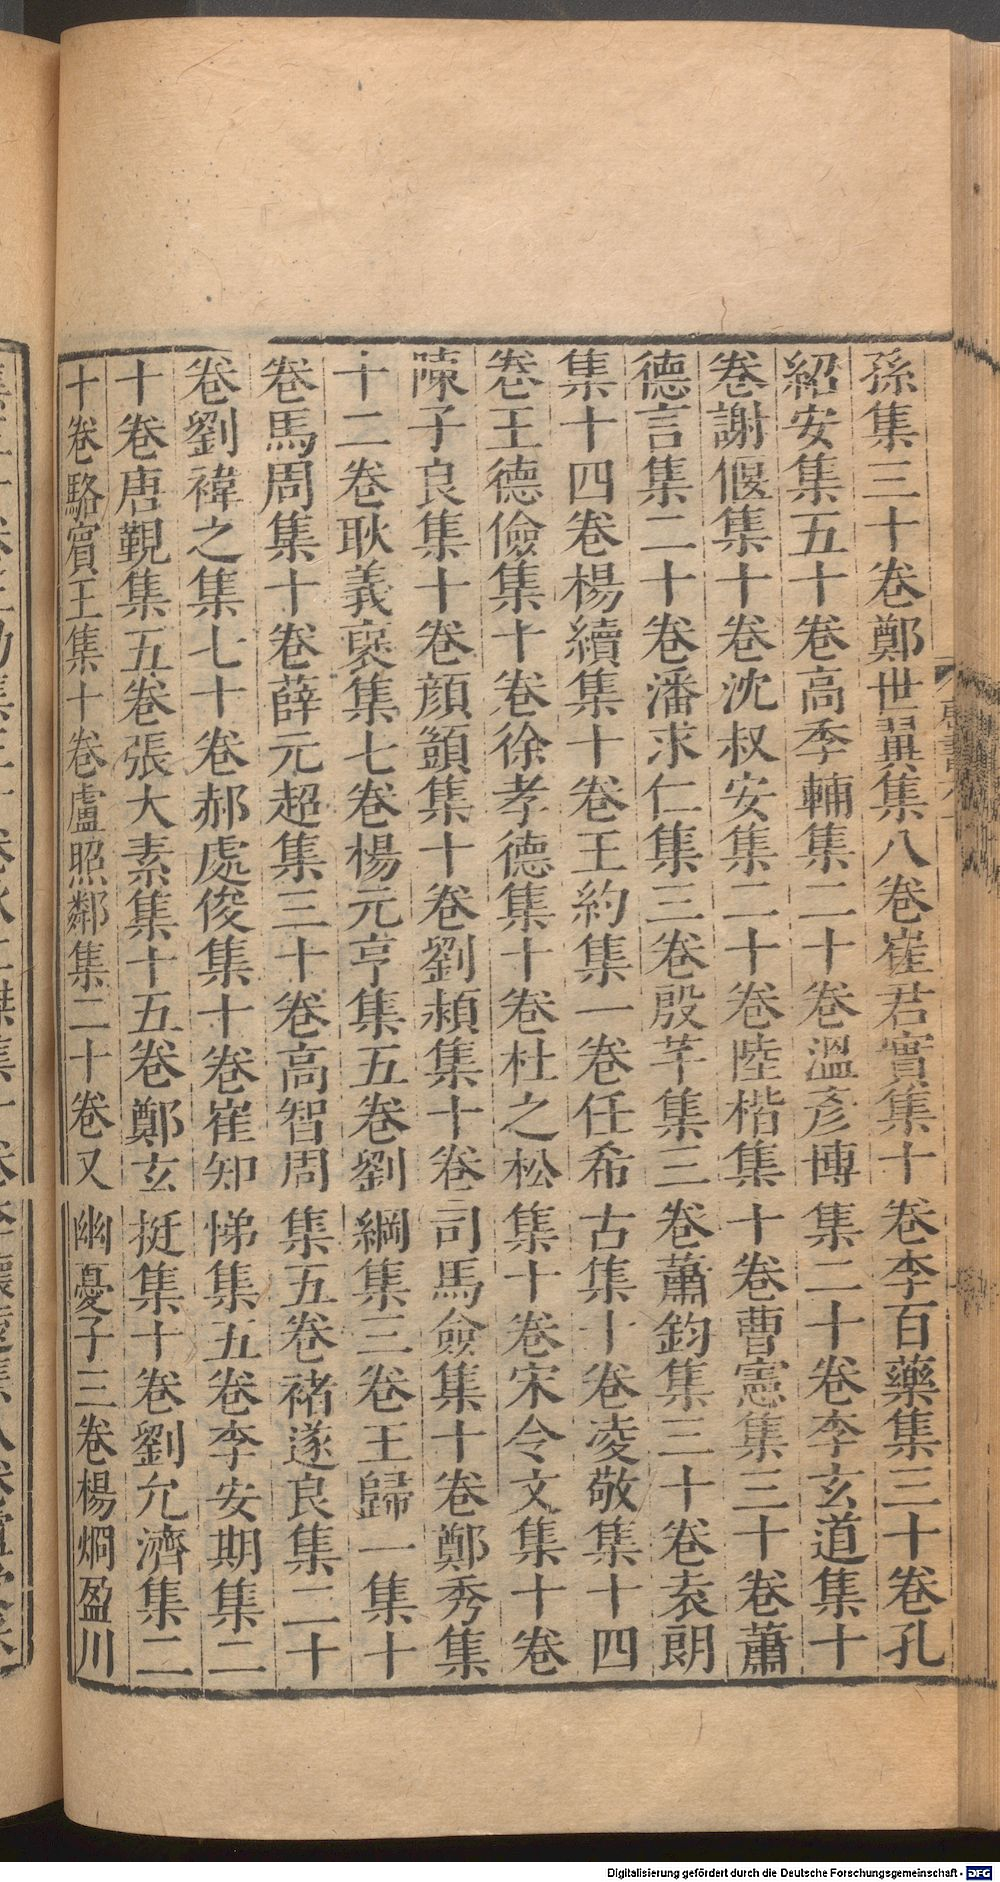 孫集三十卷鄭世翼集八卷崔君實集十卷李百藥集三十卷孔
紹安集五十卷高季輔集二十卷溫彥博集二十卷李玄道集十
卷謝偃集十卷沈叔安集二十卷陸楷集十卷曹憲集三十卷蕭
德言集二十卷潘求仁集三卷殷芊集三卷蕭鈞集三十卷袁朗
集十四卷楊續集十卷王約集一卷任希古集十卷凌敬集十四
卷王德儉集十卷徐孝德集十卷杜之松集十卷宋令文集十卷
陳子良集十卷顏顗集十卷劉潁集十卷司馬僉集十卷鄭秀集
十二卷耿義褒集七卷楊元亨集五卷劉綱集三卷王歸一集十
卷馬周集十卷薛元超集三十卷高智周集五卷褚遂良集二十
卷劉禕之集七十卷郝處俊集十卷崔知悌集五卷李安期集二
十卷唐覲集五卷張大素集十五卷鄭玄挺集十卷劉允濟集二
十卷駱賓王集十卷盧照鄰集二十卷又幽憂子三卷楊烱盈川
Digitalisierung gefördert durch die Deutsche Forschungsgemeinschaft - DFG